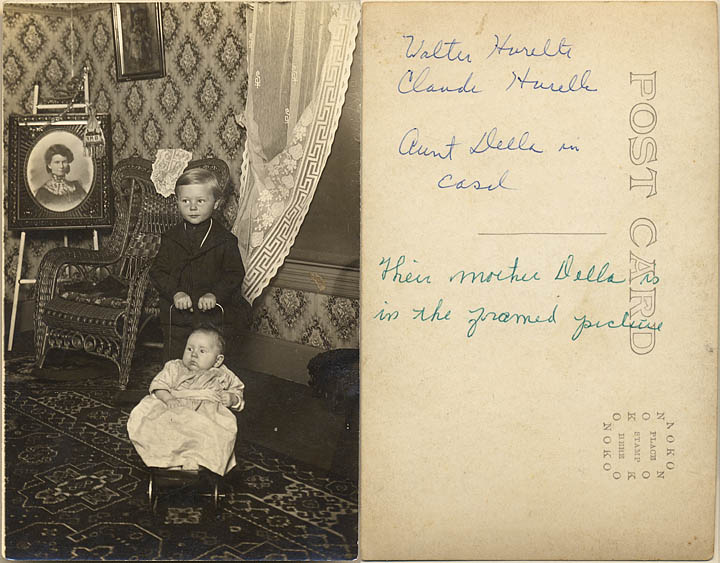 Walter Hurelle
Claude Hurelle
Aunt Della in
casel
Their mother Della is
in the framed picture
POST CARD
NOKO
PLACE
STAMP
HERE
NOKO